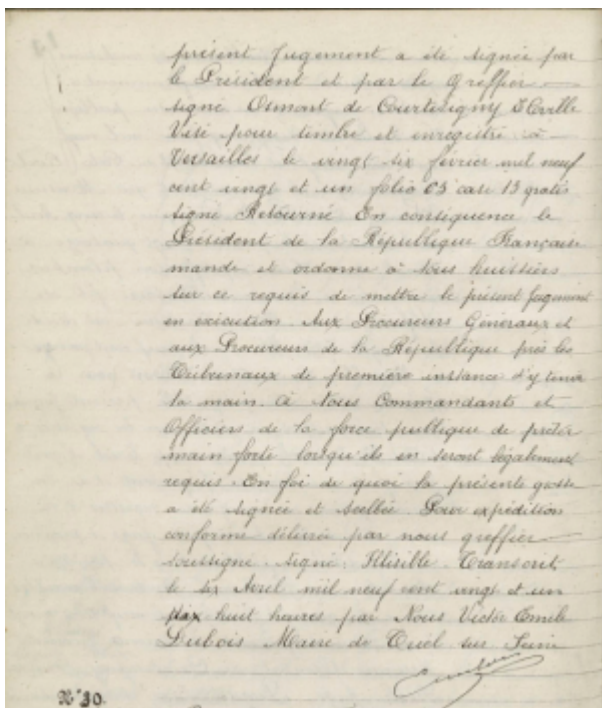 présent Jugement a été signée par
le Président et par le Greffier —
signé Osmont de Courtisigny
Visé pour timbre et enregistré à —
Versailles le vingt six février mil neuf
cent vingt et un folio 03 case 13 gratis
signé Retourné En conséquence le
Président de la République Française
mande et ordonne à tous huissiers
sur ce requis de mettre le présent jugement
en exécution. Aux Procureurs Généraux et
aux Procureurs de la République près les
Tribunaux de première instance d'y tenir
la main. à tous Commandants et
Officiers de la force publique de prêter
main forte lorsqu'ils en seront légalement
requis. En foi de quoi la présente grosse
a été signée et scellée Pour expédition
conforme délivrée par nous greffier —
soussigné. signé: Illisible. Transcrit
le six Avril mil neuf cent vingt et un
huit heures par Nous Victor Emile
Dubois Maire de Triel sur Seine
N° 30.